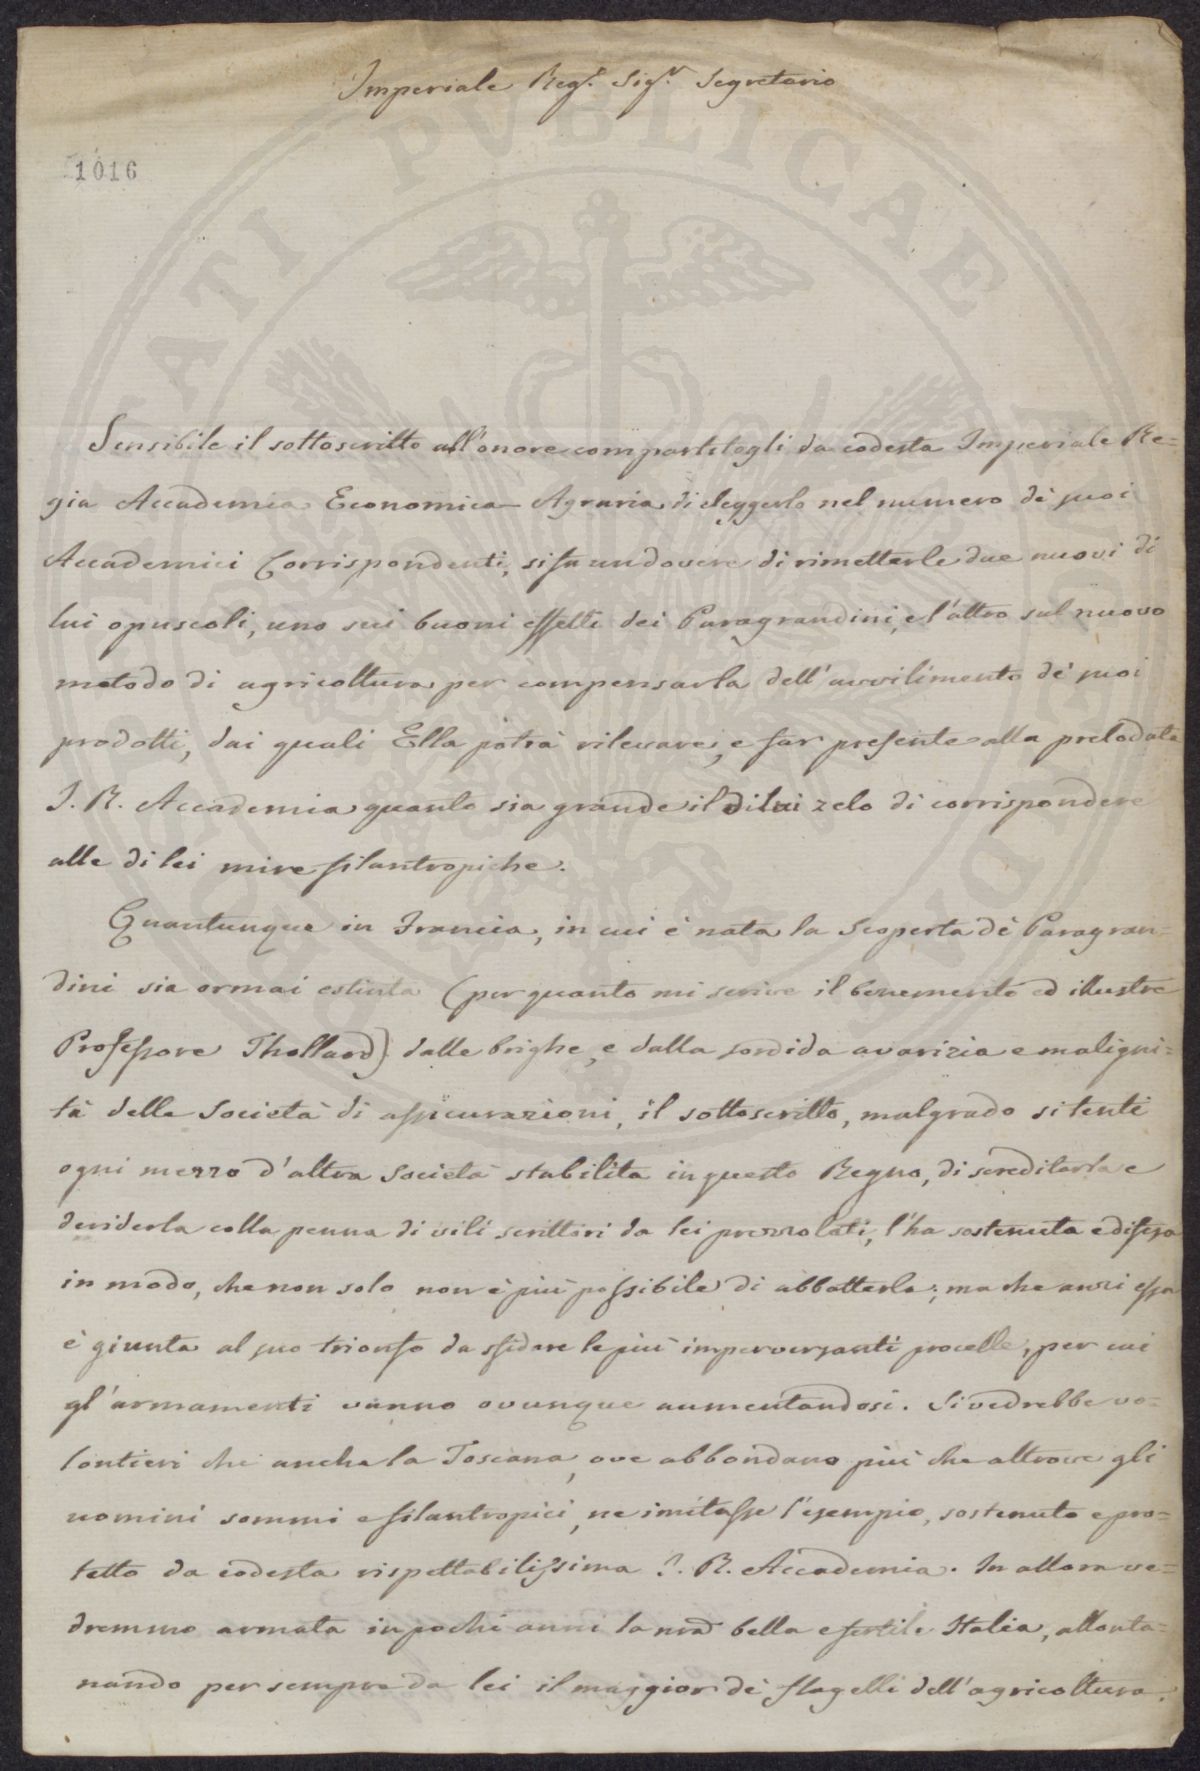 Imperiale Reg.e Sig.r Segretario
1016
Sensibile il sottoscritto all'onore compartitogli da codesta Imperiale Re=
gia Accademia Economica-Agraria di eleggerlo nel numero de' suoi
Accademici Corrispondenti, si fa un dovere di rimetterle due nuovi di
lui opuscoli, uno sui buoni effetti dei Paragrandini, e l'altro sul nuovo
metodo di agricoltura per compensarla dell'avvilimento de' suoi
prodotti, dai quali Ella potrà rilevare, e far presente alla prelodata
I. R. Accademia quanto sia grande il di lui zelo di corrispondere
alle di lei mire filantropiche.
Quantunque in Francia, in cui è nata la scoperta de' Paragran=
dini sia ormai estinta (per quanto mi scrive il benemerito ed illustre
Professore Thollard) dalle brighe, e dalla sordida avarizia e maligni=
tà delle Società di assicurazioni, il sottoscritto, malgrado si tenti
ogni mezzo d'altra Società stabilita in questo Regno, di screditarla e
deriderla colla penna di vili scrittori da lei prezzolati, l'ha sostenuta e difesa
in modo, che non solo non è più possibile di abbatterla; ma che anzi essa
è giunta al suo trionfo da sfidare le più imperversanti procelle, per cui
gl'armamenti vanno ovunque aumentandosi. Si vedrebbe vo=
lontieri che anche la Toscana, ove abbondano più che altrove gli
uomini sommi e filantropici, ne imitasse l'esempio, sostenuto e pro=
tetto da codesta rispettabilissima I. R. Accademia. In allora ve=
dremmo armata in pochi anni la nrã bella e fertile Italia, allonta=
nando per sempre da lei il maggior de' flagelli dell'agricoltura.
PUBLICAE